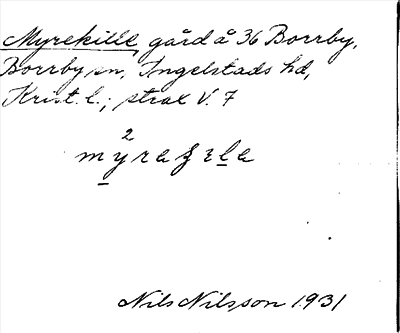 Myrekille, gård å 36 Borrby,
Borrby sn, Ingelstads hd,
Krist. l.; strax V. 7
2
Nils Nilsson 1931